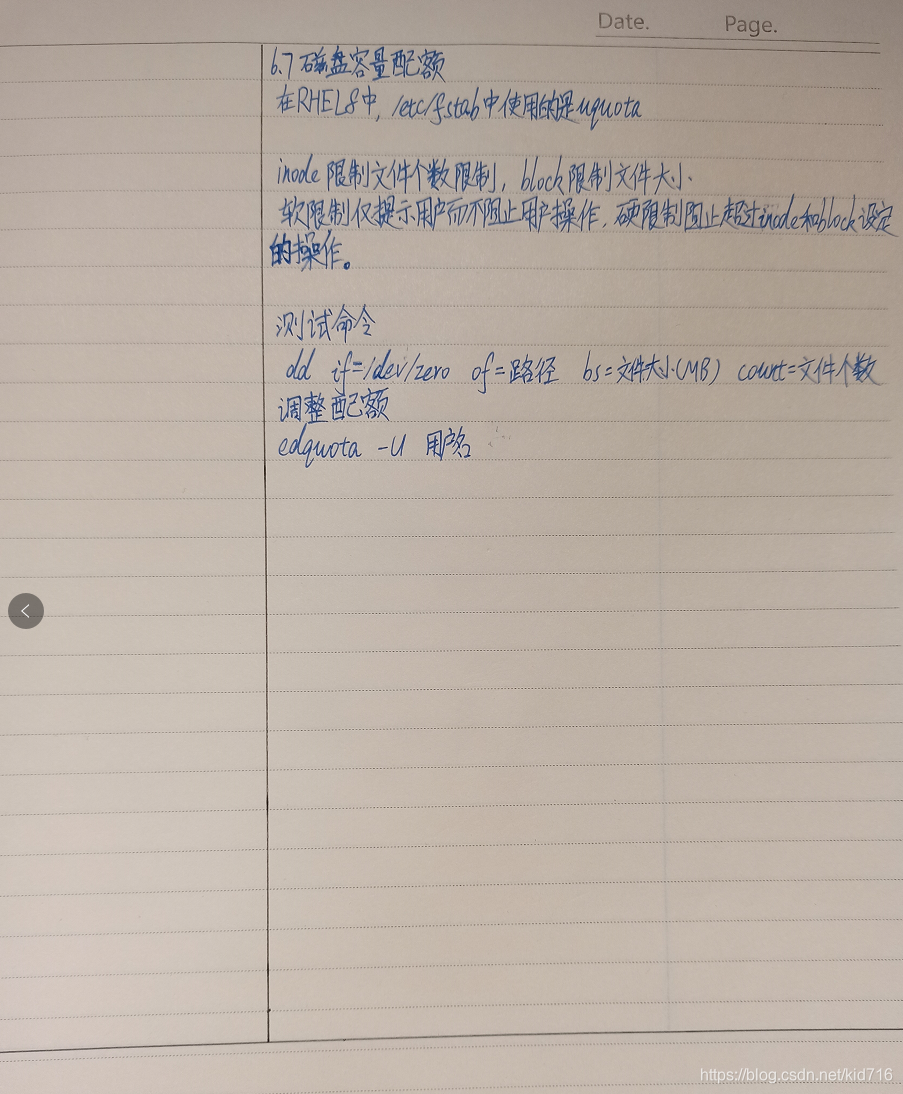 Date. Page.
6.7 磁盘容量配额
在RHEL8中, /etc/fstab中使用的是uquota
inode 限制文件个数限制, block 限制文件大小.
软限制仅提示用户而不阻止用户操作, 硬限制阻止超过inode和block设定
的操作。
测试命令
dd if=/dev/zero of=路径 bs=文件大小(MB) count=文件个数
调整配额
edquota -u 用户名
https://blog.csdn.net/kid716